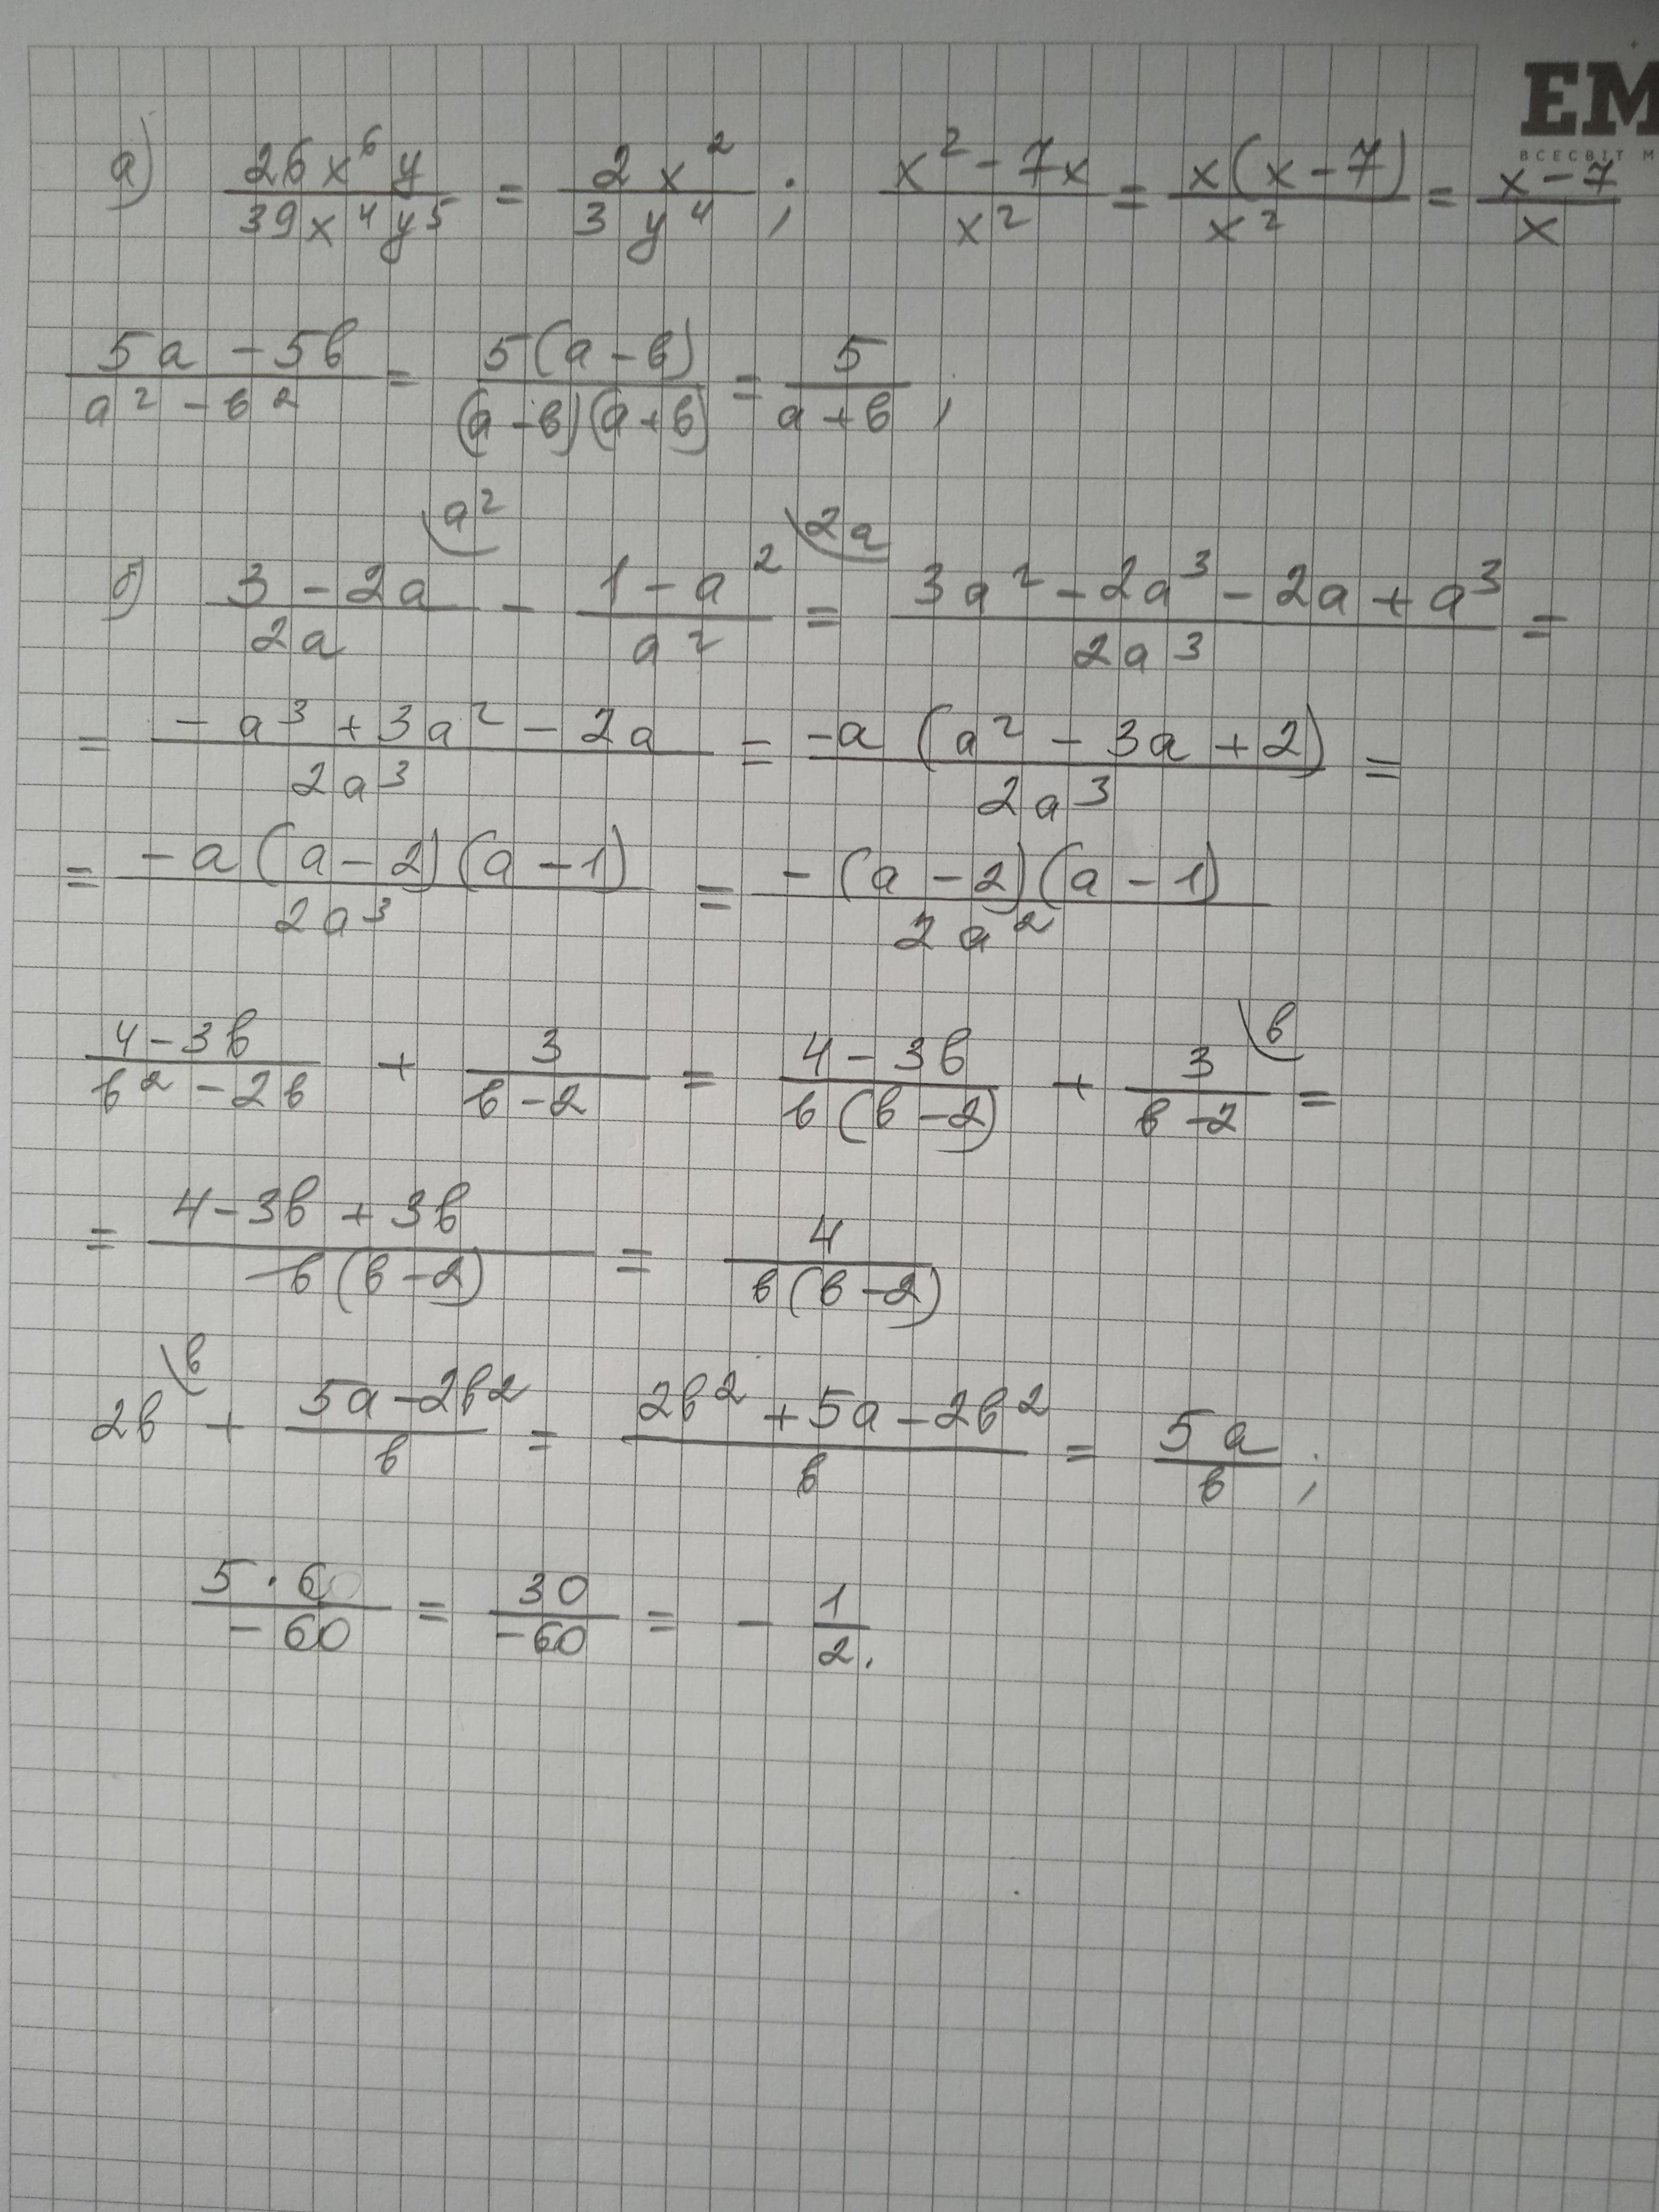 EM
ВСЕСВІТ М
а) 26x⁶y/39x⁴y⁵ = 2x²/3y⁴ ; x² - 7x/x² = x(x - 7)/x² = x - 7/x
5a - 5b/a² - b² = 5(a - b)/(a - b)(a + b) = 5/a + b ;
б) 3 - 2a/2a \a² - 1 - a²/a² \2a = 3a² - 2a³ - 2a + a³/2a³ =
= - a³ + 3a² - 2a/2a³ = -a (a² - 3a + 2)/2a³ =
= - a (a - 2)(a - 1)/2a³ = - (a - 2)(a - 1)/2a²
4 - 3b/b² - 2b + 3/b - 2 = 4 - 3b/b(b - 2) + 3/b - 2 \b =
= 4 - 3b + 3b/b(b - 2) = 4/b(b - 2)
2b \b + 5a - 2b²/b = 2b² + 5a - 2b²/b = 5a/b ;
5 · 6/- 60 = 30/- 60 = - 1/2.